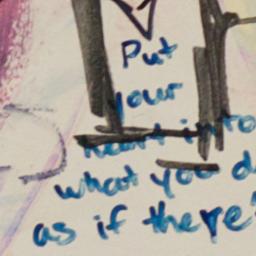 Put
your
heart into
what you d
as if there's